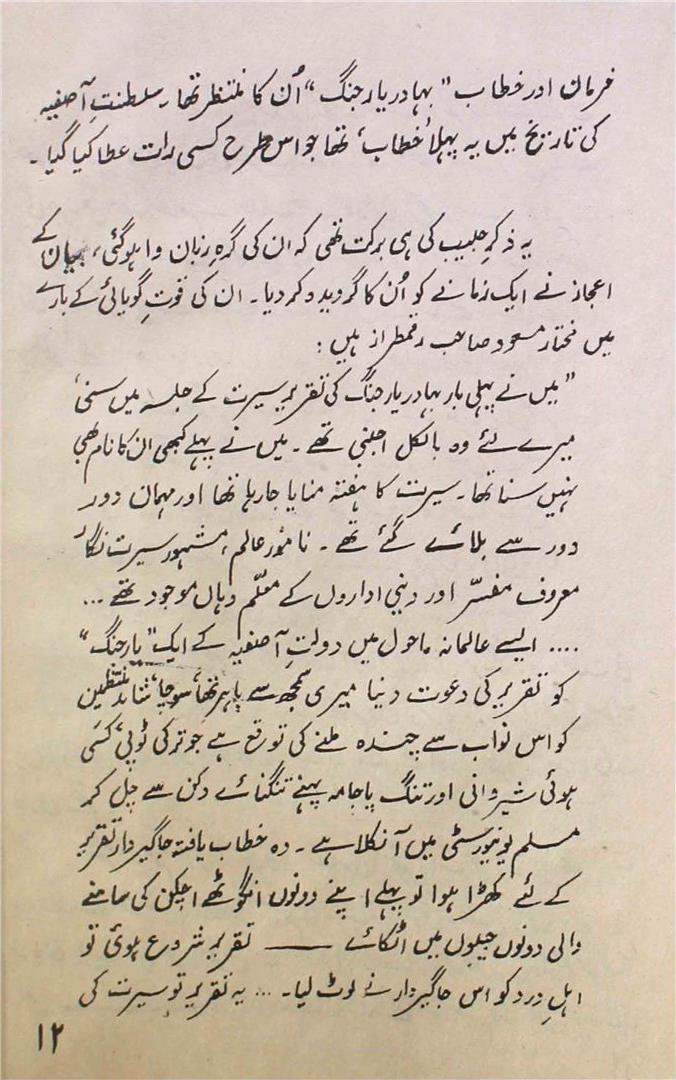 فرمان اور خطاب "بہادر یار جنگ" اُن کا منتظر تھا۔ سلطنتِ آصفیہ
کی تاریخ میں یہ پہلا 'خطاب' تھا جو اس طرح کسی رات عطا کیا گیا۔
یہ ذکرِ حبیب کی ہی برکت تھی کہ ان کی گرہِ زبان وا ہو گئی، بیان کے
اعجاز نے ایک زمانے کو اُن کا گرویدہ کر دیا۔ ان کی قوتِ گویائی کے بارے
میں مختار مسعود صاحب رقمطراز ہیں:
"میں نے پہلی بار بہادر یار جنگ کی تقریر سیرت کے جلسہ میں سنی،
میرے لئے وہ بالکل اجنبی تھے۔ میں نے پہلے کبھی ان کا نام بھی
نہیں سنا تھا۔ سیرت کا ہفتہ منایا جا رہا تھا اور مہمان دور
دور سے بلائے گئے تھے۔ نامور عالم، مشہور سیرت نگار
معروف مفسّر اور دینی اداروں کے معلّم وہاں موجود تھے ...
.... ایسے عالمانہ ماحول میں دولتِ آصفیہ کے ایک "یار جنگ"
کو تقریر کی دعوت دینا میری سمجھ سے باہر تھا، سوچا، شاید منتظمین
کو اس نواب سے چندہ ملنے کی توقع ہے جو ترکی ٹوپی، کسی
ہوئی شیروانی اور تنگ پاجامہ پہنے تنگنائے دکن سے چل کر
مسلم یونیورسٹی میں آ نکلا ہے۔ وہ خطاب یافتہ جاگیردار تقریر
کے لئے کھڑا ہوا تو پہلے اپنے دونوں انگوٹھے اچکن کی سامنے
والی دونوں جیبوں میں اٹکائے —— تقریر شروع ہوئی تو
اہلِ درد کو اس جاگیردار نے لوٹ لیا۔ ... یہ تقریر تو سیرت کی
۱۲